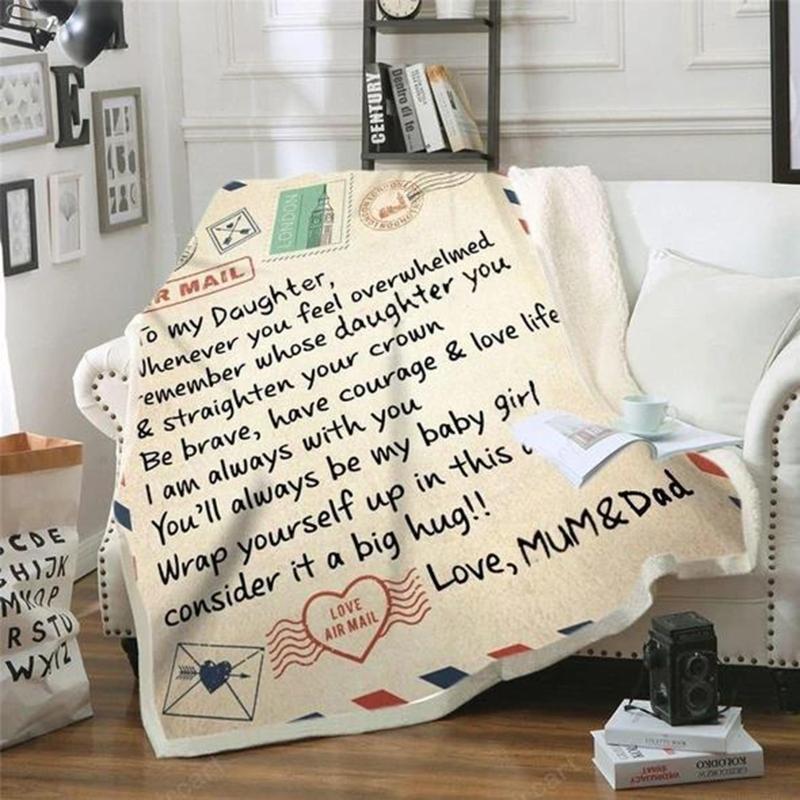 CENTURY
Dentro di te
E
LONDON
R MAIL
To my Daughter,
Whenever you feel overwhelmed
remember whose daughter you
& straighten your crown
Be brave, have courage & love life
I am always with you
You'll always be my baby girl
Wrap yourself up in this
consider it a big hug!!
Love, MUM&Dad
LOVE
AIR MAIL
CDE
GHIJK
MNOP
RSTU
WXYZ
KOŁODKO
GRZEGORZ W.